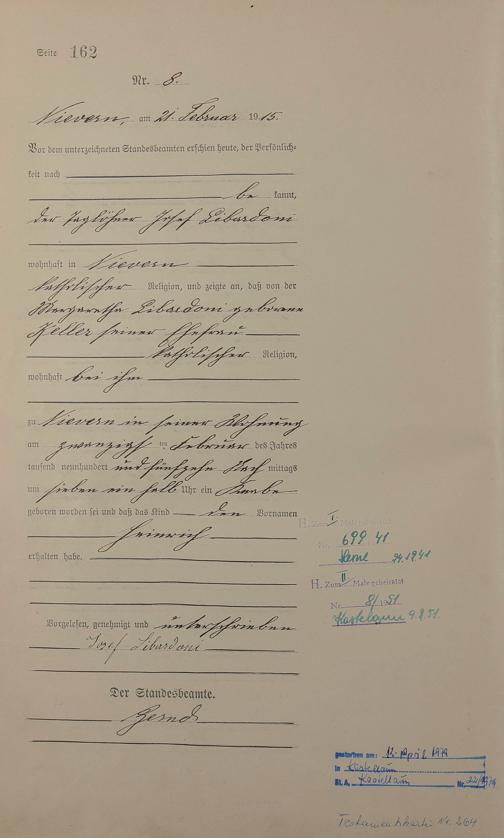 Seite 162
Nr. 8.
Nievern, am 21. Februar 1915.
Vor dem unterzeichneten Standesbeamten erschien heute, der Persönlich-
keit nach
be kannt,
der Taglöhner Josef Libardoni
wohnhaft in Nievern
katholischer Religion, und zeigte an, daß von der
Margaretha Libardoni geborene
Keller seiner Ehefrau
katholischer Religion,
wohnhaft bei ihm
zu Nievern in seiner Wohnung
am zwanzigsten Februar des Jahres
tausend neunhundert und fünfzehn Nach mittags
um sieben ein halb Uhr ein Knabe
geboren worden sei und daß das Kind den Vornamen
Heinrich
erhalten habe.
Vorgelesen, genehmigt und unterschrieben
Josef Libardoni
Der Standesbeamte.
H. Zum I Male geheiratet
Nr. 699 41
Herne 1941
H. Zum II Male geheiratet
Nr. 8/1951
Kastellaun 9.8.51
gestorben am: April 1979
in Kastellaun
St. A. Kastellaun Nr.
Nr. 264